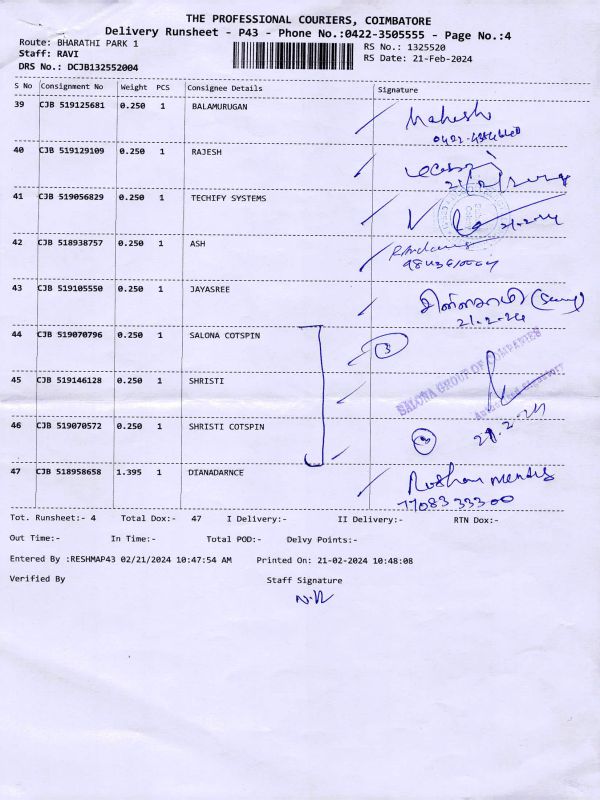 THE PROFESSIONAL COURIERS, COIMBATORE
Delivery Runsheet - P43 - Phone No.:0422-3505555 - Page No.:4
Route: BHARATHI PARK 1
Staff: RAVI
DRS No.: DCJB132552004
RS No.: 1325520
RS Date: 21-Feb-2024
S No Consignment No Weight PCS Consignee Details Signature
39 CJB 519125681 0.250 1 BALAMURUGAN Mahesh
40 CJB 519129109 0.250 1 RAJESH
41 CJB 519056829 0.250 1 TECHIFY SYSTEMS 21.2.24
42 CJB 518938757 0.250 1 ASH
43 CJB 519105550 0.250 1 JAYASREE
21.2.24
44 CJB 519070796 0.250 1 SALONA COTSPIN 3
SALONA GROUP OF COMPANIES
Authorised Signatory
45 CJB 519146128 0.250 1 SHRISTI
46 CJB 519070572 0.250 1 SHRISTI COTSPIN
21.2.24
47 CJB 518958658 1.395 1 DIANADARNCE Roshan Mendis
7708333300
Tot. Runsheet:- 4 Total Dox:- 47 I Delivery:- II Delivery:- RTN Dox:-
Out Time:- In Time:- Total POD:- Delvy Points:-
Entered By :RESHMAP43 02/21/2024 10:47:54 AM Printed On: 21-02-2024 10:48:08
Verified By Staff Signature
N.R